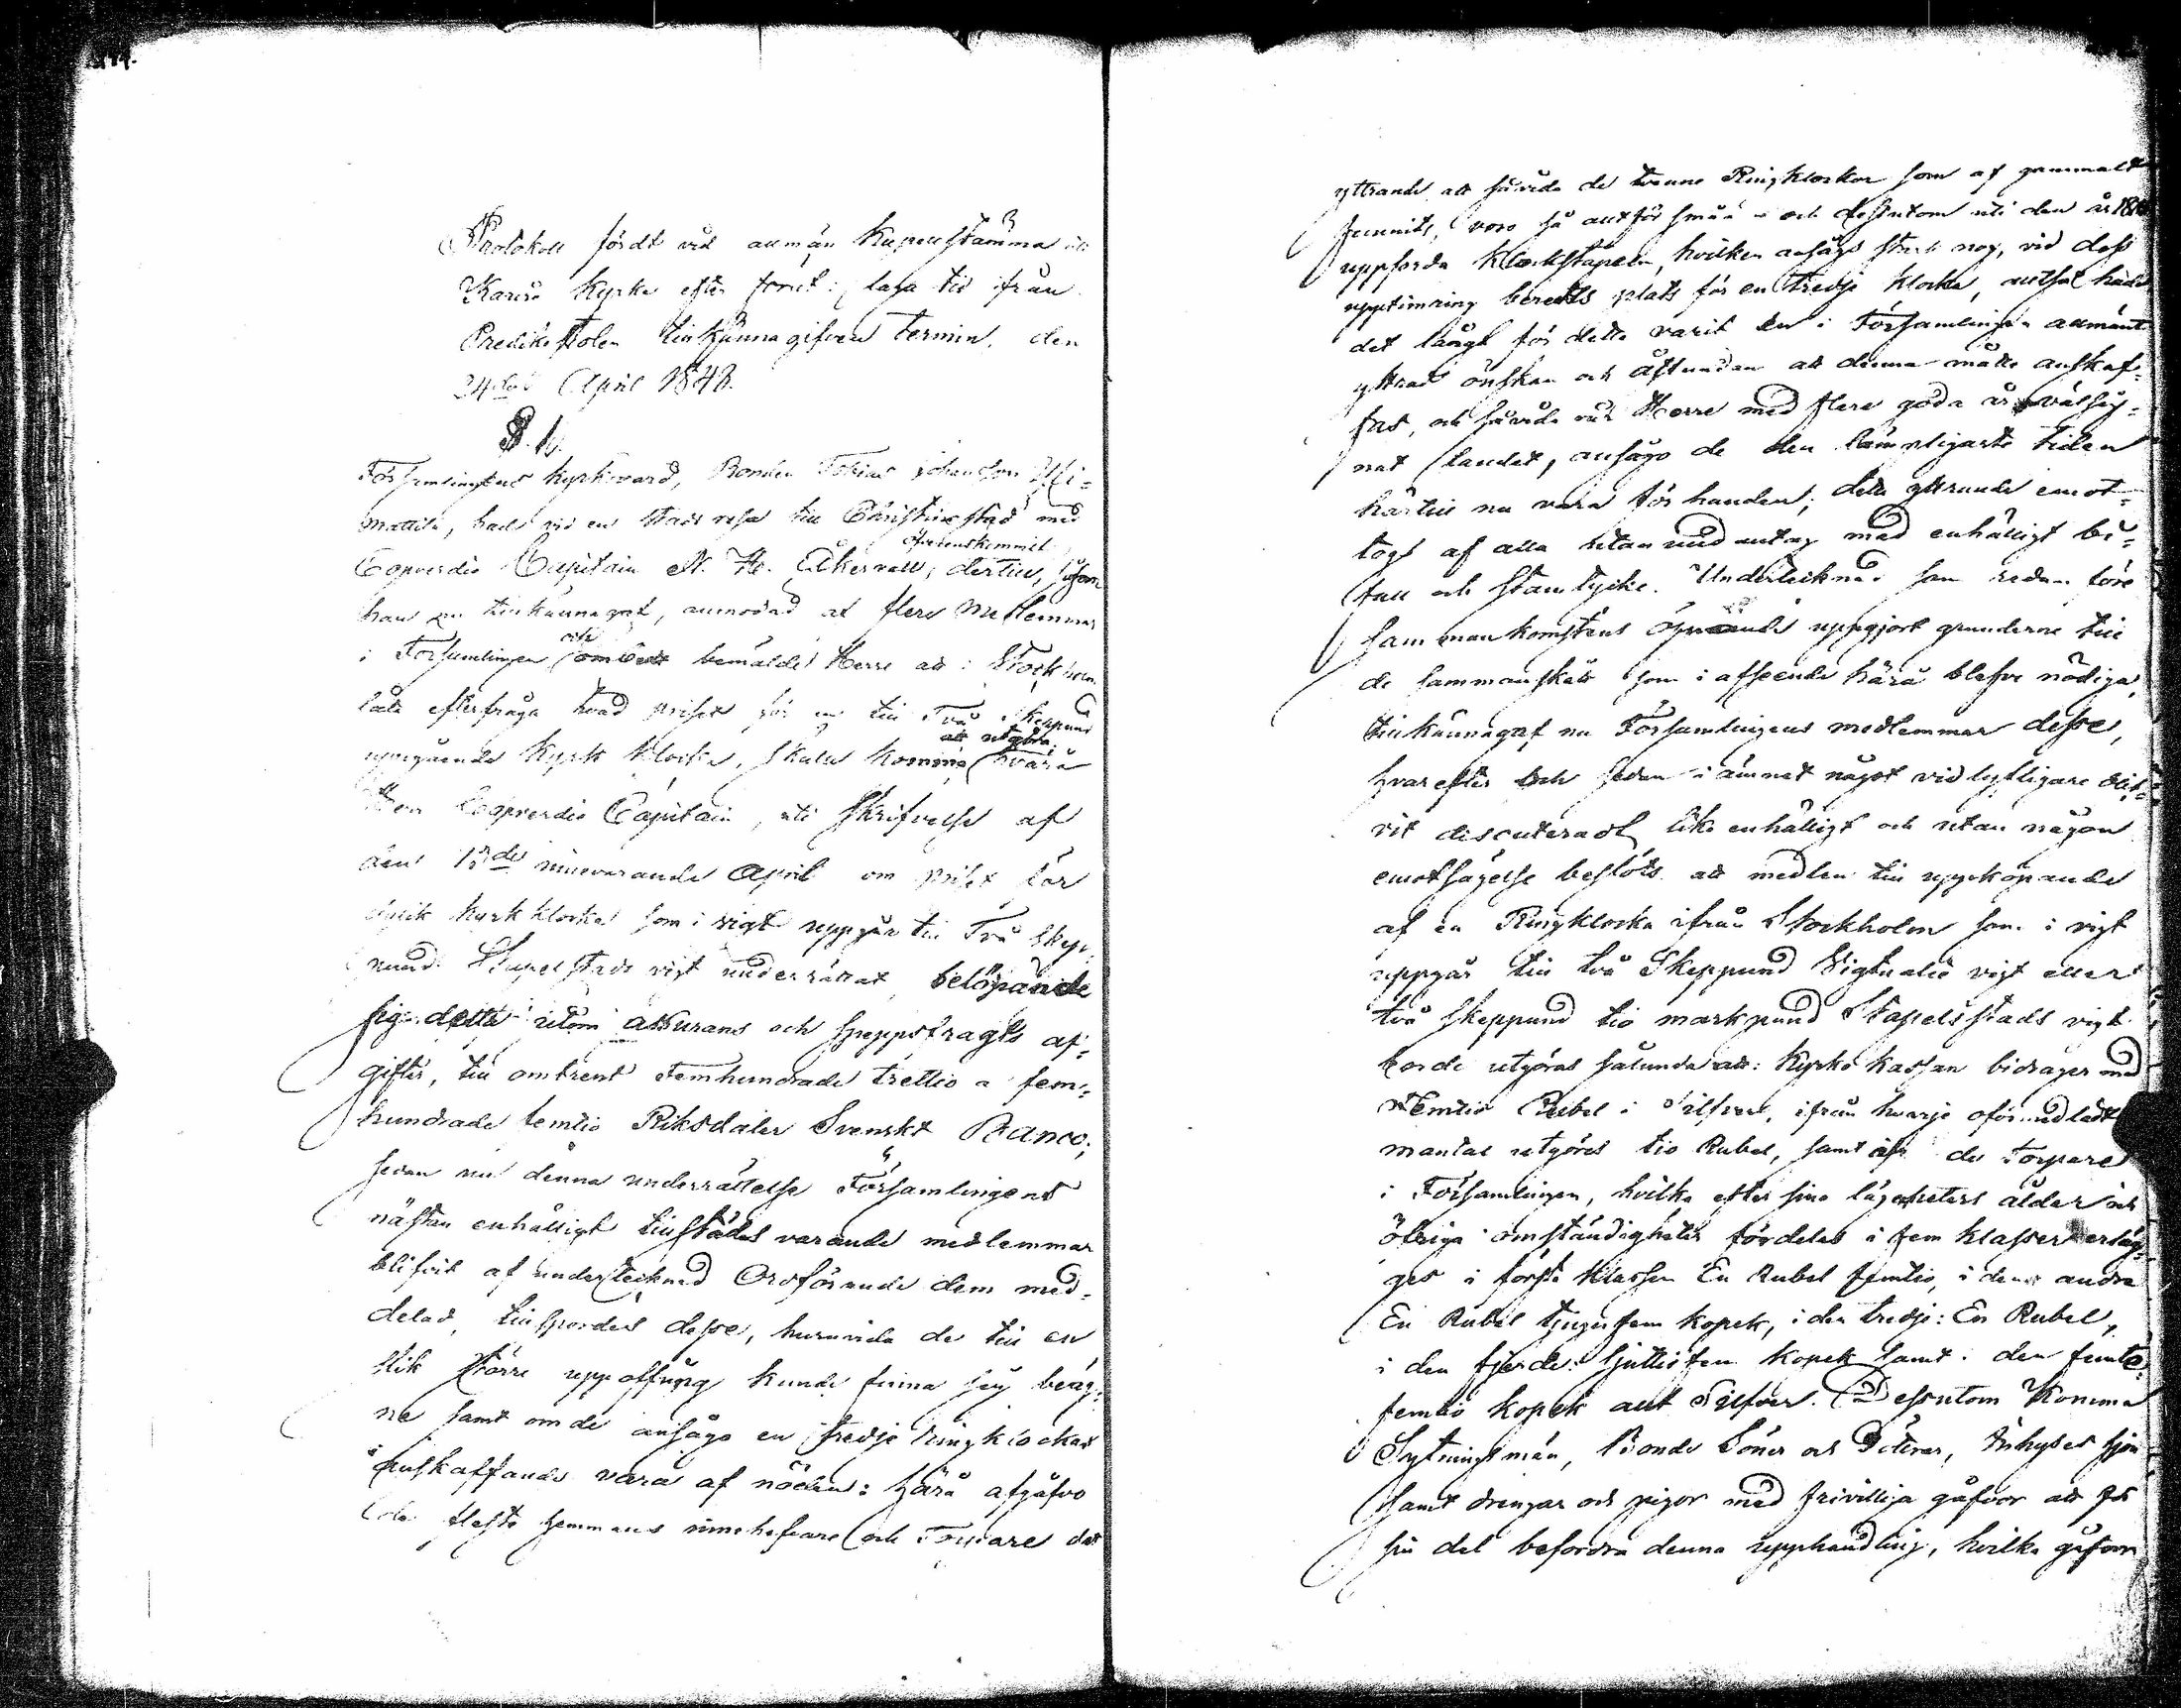 Protokoll fördt vid allmän Kapellstämma uti
Karvia Kyrka efter förut i laga tid ifrån
Predikstolen tillkännagifven termin, den
24de April 1848.
§. 1.
Församlingens kyrkovärd, Bonden Tobias Johansson
mattila, hade vid en stads resa till Christinæstad med
öfverenskommit
Coopverdie Capitain N. H. Åkervall, dertill, såsom
han tillkännagaf, anmodad af flere Medlemmar
och
i Församlingen ombedt bemälde Herre att i Stockholm
låta efterfråga hvad priset för en till Två Skeppund
att utgöra,
uppgående Kyrk klocka, skulle komma hvarå
Herr Coopverdie Capitain, uti skrifvelse af
den 13de innevarande April om priset för
dylik kyrkklocka som i vigt uppgår till Två Skep-
pund Stapelstads vigt underrättat, belöpande
sig detta utom assurans och skeppsfragts af-
gifter, till omkrent Femhundrade trettio a fem-
hundrade femtio Riksdaler Svenskt Banco;
sedan nu denna underrättelse Församlingens
nästan enhälligt tillstädes varande medlemmar
blifvit af undertecknad Ordförande dem med-
delad, tillspordes desse, huruvida de till en
slik större uppoffring kunde finna sig beäg-
ne samt om de ansågo en tredje ringklockas
anskaffande vara af nöden: härå afgåfvo
de fleste hemmans innehafvare och Torpare det
yttrande att såvida de tvenne Ringklockor som af gammalt
funnits, voro så alltför små och dessutom uti den år
uppförda Klockstapeln, hvilken ansågs stark nog, vid dess
upptimring beredts plats för en tredje klocka, alltså hade
det långt för detta varit en i Församlingen allmänt
yttrad önskan och åstundan att denna måtte anskaf-
fas, och såvida vår Herre med flere goda år välsig-
nat landet, ansågo de den lämpligaste tiden
härtill nu vara för handen; detta yttrande emot-
togs af alla utan undantag med enhälligt bi-
fall och samtycke. Undertecknad som redan före
sammankomstens öpnande uppgjort grunderne till
de sammanskått som i afseende härå blefve nödiga,
tillkännagaf nu Församlingens medlemmar desse,
hvarefter och sedan i ämnet något vidlyftigare blif-
vit discuteradt, lika enhälligt och utan någon
emotsägelse beslöts att medlen till uppköpande
af en Ringklocka ifrån Stockholm som i vigt
uppgår till två Skeppund Vigtualie vigt eller
två Skeppund tio markpund Stapelsstads vigt
borde utgöras sålunda att: Kyrko kassan bidrager med
Femtio Rubel i Silfver, ifrån hvarje oförmedladt
mantal utgöres tio Rubel, samt af de Torpare
i Församlingen, hvilka efter sine lägenheters ålder och
öfriga omständigheter fördelas i fem klasser erläg-
ges i första klassen En Rubel femtio, i den andra
En Rubel tjugufem kopek, i den tredje: En Rubel,
i den fjerde: sjuttiofem kopek samt i den femte
femtio kopek allt Silfver. Dessutom komma
Sytningsmän, Bonde Söner och Döttrar, Inhyses hjon
samt drengar och pigor med frivilliga gåfvor att för
sin del befordra denna upphandling, hvilka gåfvor